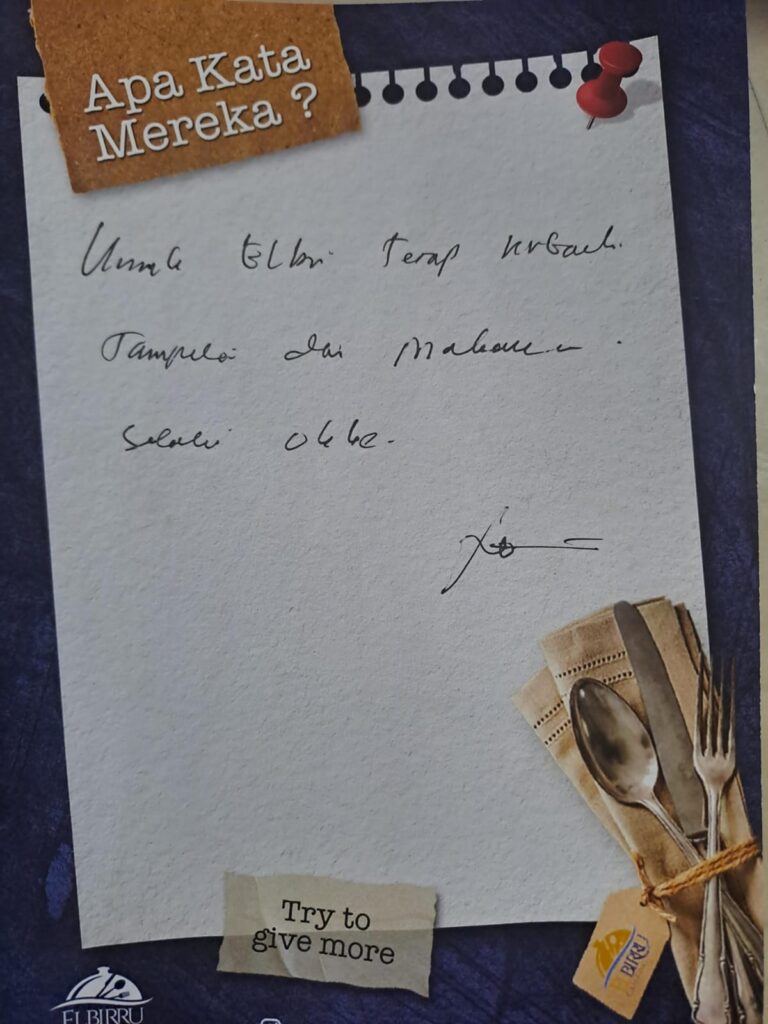 Apa Kata
Mereka ?
Untuk Elbir Tetap terbaik.
Tampilan dan Makanan.
Selalu Okke.
Try to
give more
BIRRU
ELBIRRU